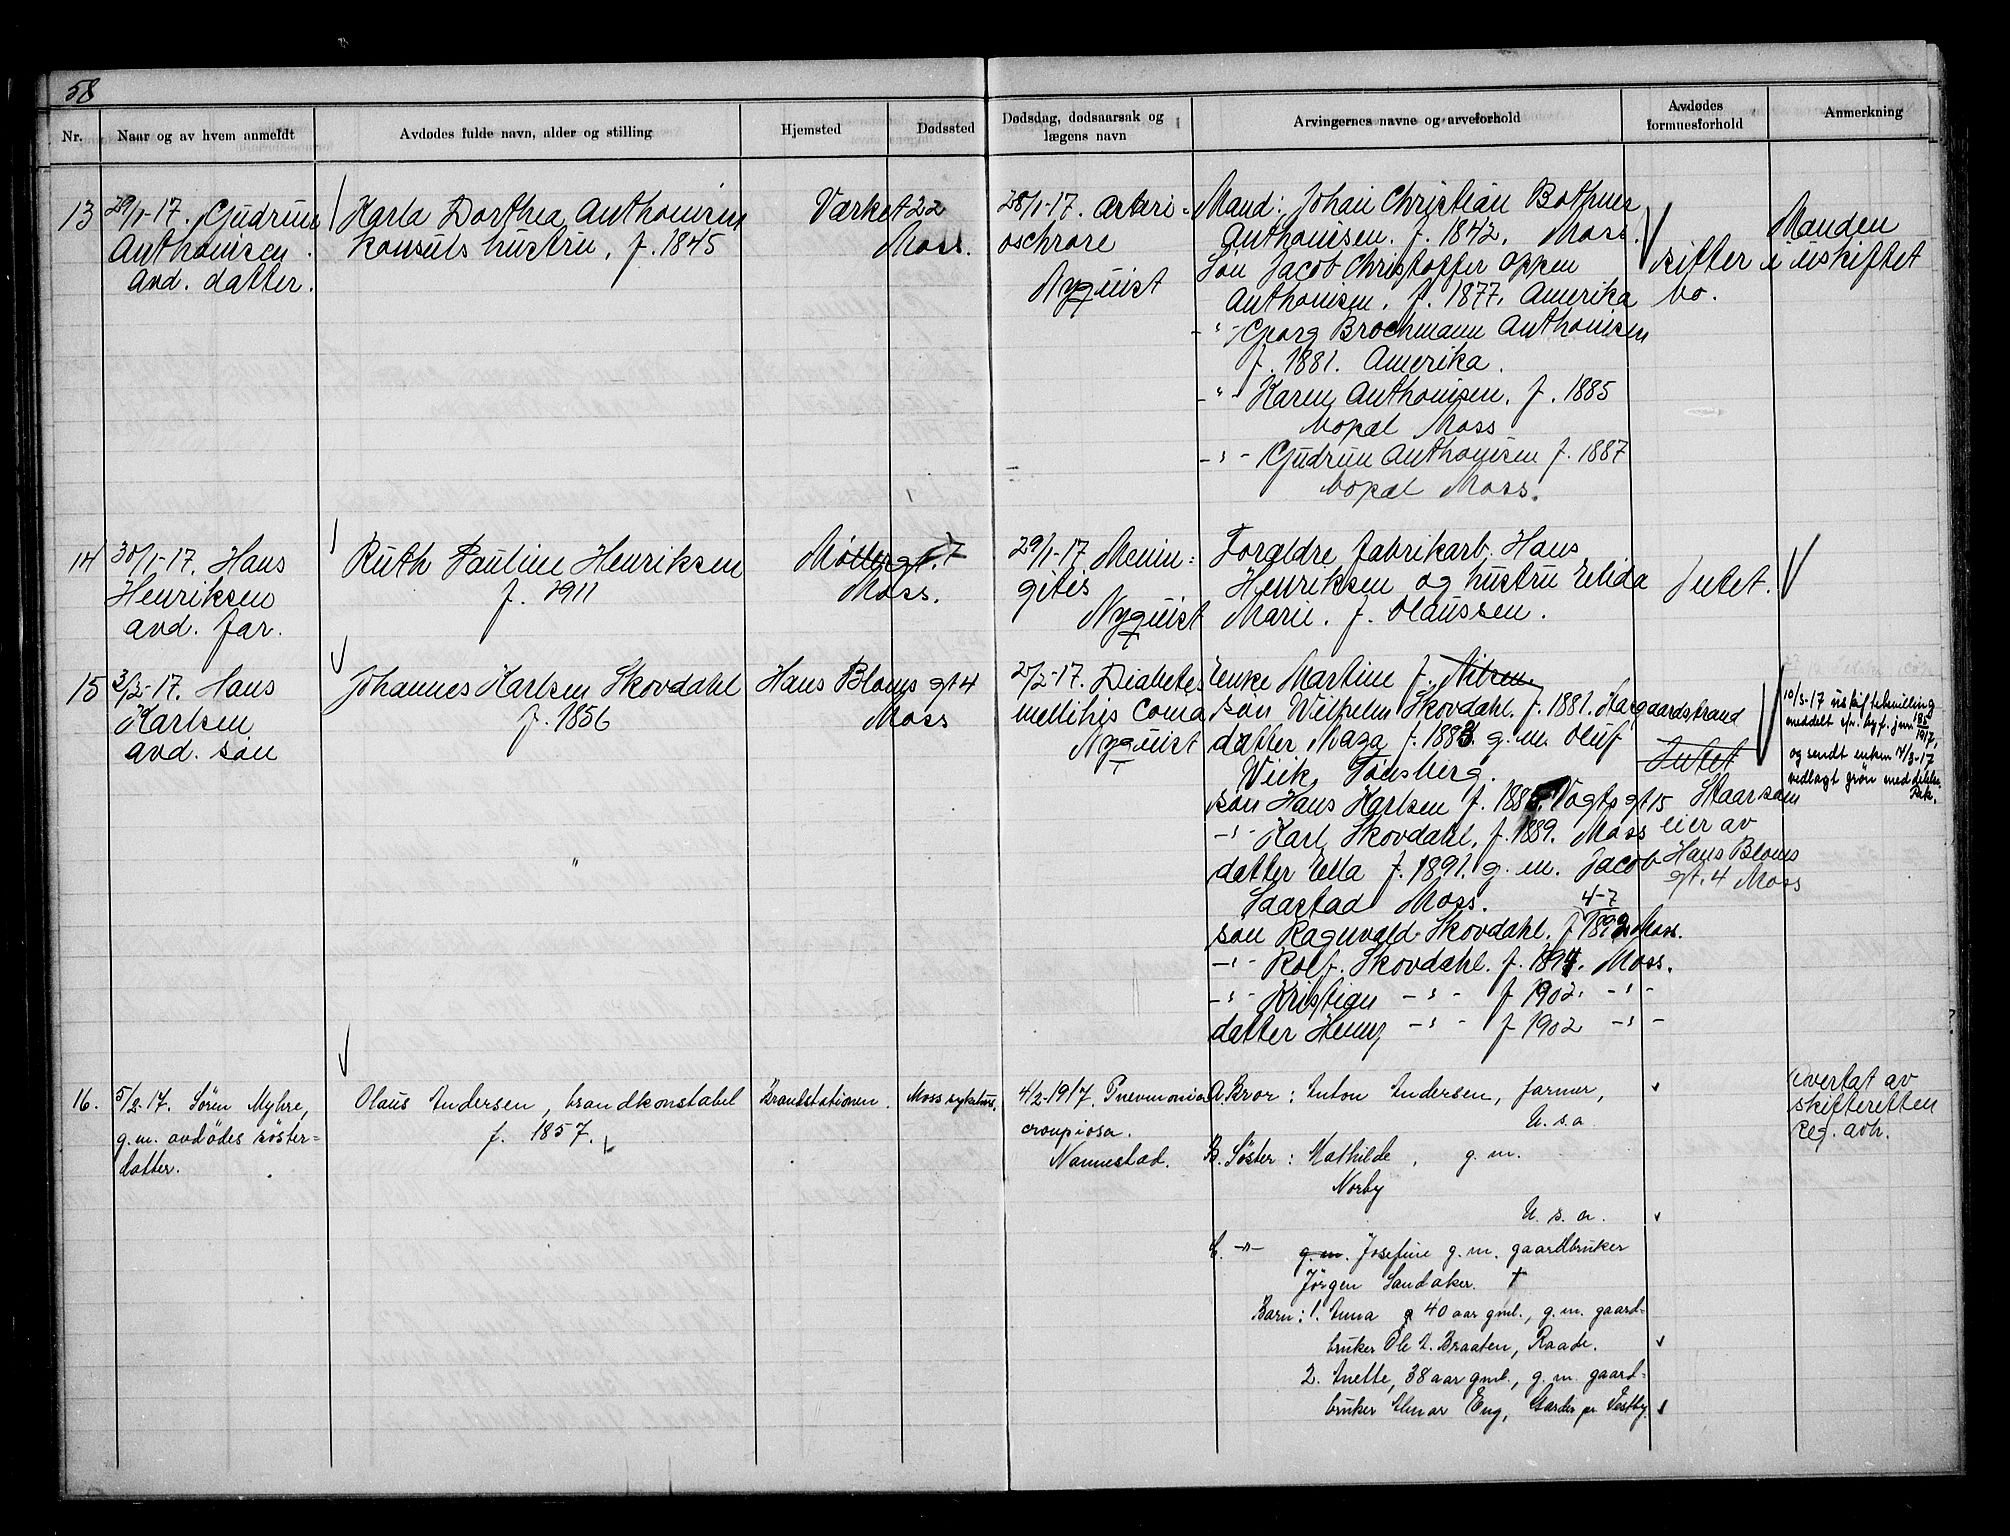 58
Nr.
Naar og av hvem anmeldt
Avdødes fulde navn, alder og stilling
Hjemsted
Dødssted
Dødsdag, dødsaarsak og
lægens navn
Arvingernes navne og arveforhold
Avdødes
formuesforhold
Anmerkning
13
29/1-17. Gudrun
Anthonisen.
avd. datter.
Karla Dorthea Anthonisen
konsuls hustru, f. 1845
Værket 22
Moss.
28/1-17. Arteri-
Nyquist
Mand: Johan Christian Bothner
Anthonisen. f. 1842. Moss.
Søn Jacob Christoffer Oppen
Anthonisen. f. 1877. Amerika
-"- Georg Brochmann Anthonisen
f. 1881. Amerika.
-"- Karen Anthonisen. f. 1885
bopæl Moss
-"- Gudrun Anthonisen f. 1887
bopæl Moss.
Manden
sitter i uskiftet
bo.
14
30/1-17. Hans
Henriksen
avd. far.
Ruth Pauline Henriksen
f. 1911
Møllergt. 7
Moss.
29/1-17 Menin=
gites
Nyquist
Forældre fabrikarb. Hans
Henriksen og hustru Elida
Marie. f. Olaussen.
Intet.
15
3/2-17. Hans
Karlsen
avd. søn
Johannes Karlsen Skovdahl
f. 1856
Hans Bloms gt 4
Moss
2/2-17. Diabetes
mellihis coma
Nyquist
Enke Martine f. Nilsen.
søn Wilhelm Skovdahl. f. 1881. Aasgaardstrand
datter Maga f. 1883. g.m. Oluf
Wiik, Tønsberg.
søn Hans Karlsen f. 188 Vogts gt 15
-"- Karl Skovdahl. f. 1889. Moss
datter Ella f. 1891. g. m. Jacob
Saastad Moss.
4-7
søn Ragnvald Skovdahl. f 1892 Moss.
-"- Rolf. Skovdahl. f. 1897. Moss.
-"- Kristian -"- f 1902. -"-
datter Henny -"- f 1902 -"-
Intet
Staar som
eier av
Hans Bloms
gt. 4 Moss
10/3-17 uskiftebevilling
meddelt
og sendt enken 17/3-17
vedlagt grøn meddelelse.
16.
5/2-17. Sören Myhre,
g.m. avdödes söster=
datter.
Olaus Andersen, brandkonstabel
f. 1857.
Brandstationen.
Moss sykehus.
4/2-1917. Pnevmonia
croupiosa.
Nannestad.
A. Bror: Anton Andersen, farmer,
U.s.a.
B. Söster: Mathilde, g.m.
Norby
U.s.a.
C. -"- g.m. Josefine g.m. gaardbruker
Jörgen Sandaker. †
Barn: 1. Anna 40 aar gml., g.m. gaard-
bruker Ole A. Braaten, Raade.
2. Anette, 38 aar gml., g.m. gaard-
bruker Einar Eng, Garder pr Vestby.
Overtat av
skifteretten
Reg. avh.